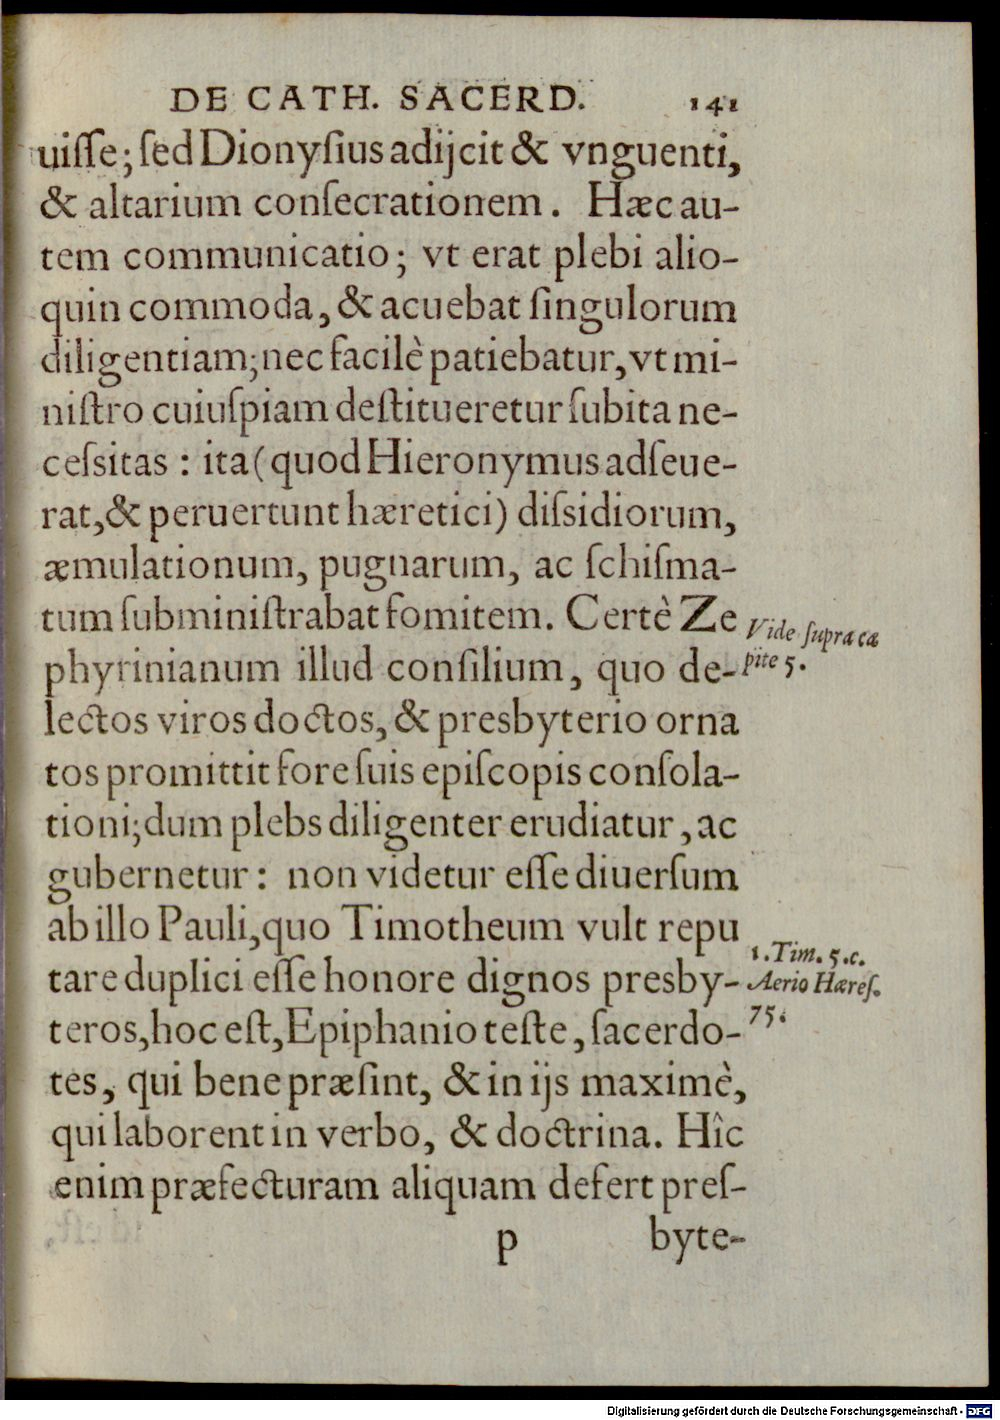 DE CATH. SACERD. 141
uiſſe; ſed Dionyſius adijcit & vnguenti,
& altarium conſecrationem. Hæc au-
tem communicatio; vt erat plebi alio-
quin commoda, & acuebat ſingulorum
diligentiam; nec facilè patiebatur, vt mi-
niſtro cuiuſpiam deſtitueretur ſubita ne-
ceſsitas : ita (quod Hieronymus adſeue-
rat, & peruertunt hæretici) diſsidiorum,
æmulationum, pugnarum, ac ſchiſma-
tum ſubminiſtrabat fomitem. Certè Ze
phyrinianum illud conſilium, quo de-
lectos viros doctos, & presbyterio orna
tos promittit fore ſuis epiſcopis conſola-
tioni; dum plebs diligenter erudiatur, ac
gubernetur: non videtur eſſe diuerſum
ab illo Pauli, quo Timotheum vult repu
tare duplici eſſe honore dignos presby-
teros, hoc eſt, Epiphanio teſte, ſacerdo-
tes, qui bene præſint, & in ijs maximè,
qui laborent in verbo, & doctrina. Hîc
enim præfecturam aliquam defert preſ-
p byte-
Vide ſupra ca
pite 5.
1. Tim. 5. c.
Aerio Hæreſ.
75.
Digitalisierung gefördert durch die Deutsche Forschungsgemeinschaft - DFG